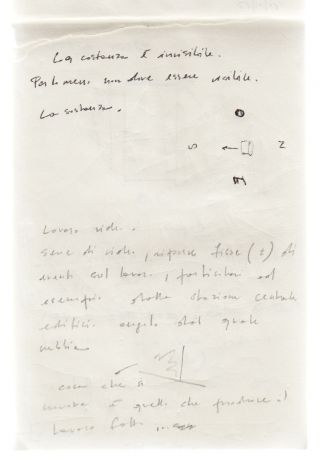 La sostanza è invisibile.
Per lo meno non deve essere visibile.
La sostanza.
O
S N
E
Lavoro video.
Serie di video, riprese fisse (t) di
eventi sul lavoro, particolari ad
esempio dalla stazione centrale
edifici angolo dal quale
nebbia
cosa che si
muove è quello che produce il
lavoro fatto